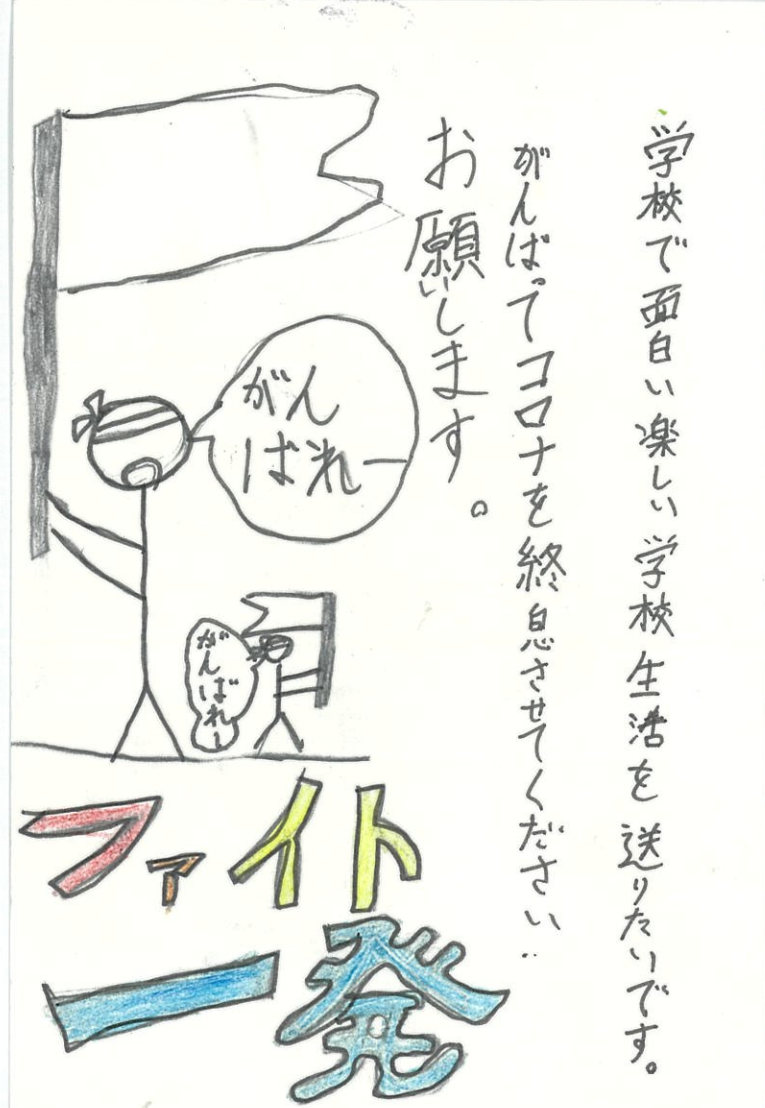 学校で面白い楽しい学校生活を送りたいです。
がんばってコロナを終息させてください..
お願いします。
がん
ばれー
がんばれー
ファイト
一発